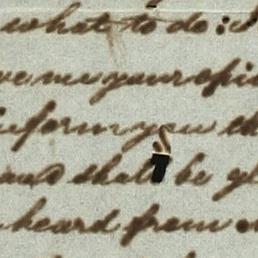 what to do :
me your opi
inform you th
and shall be gl
heard from